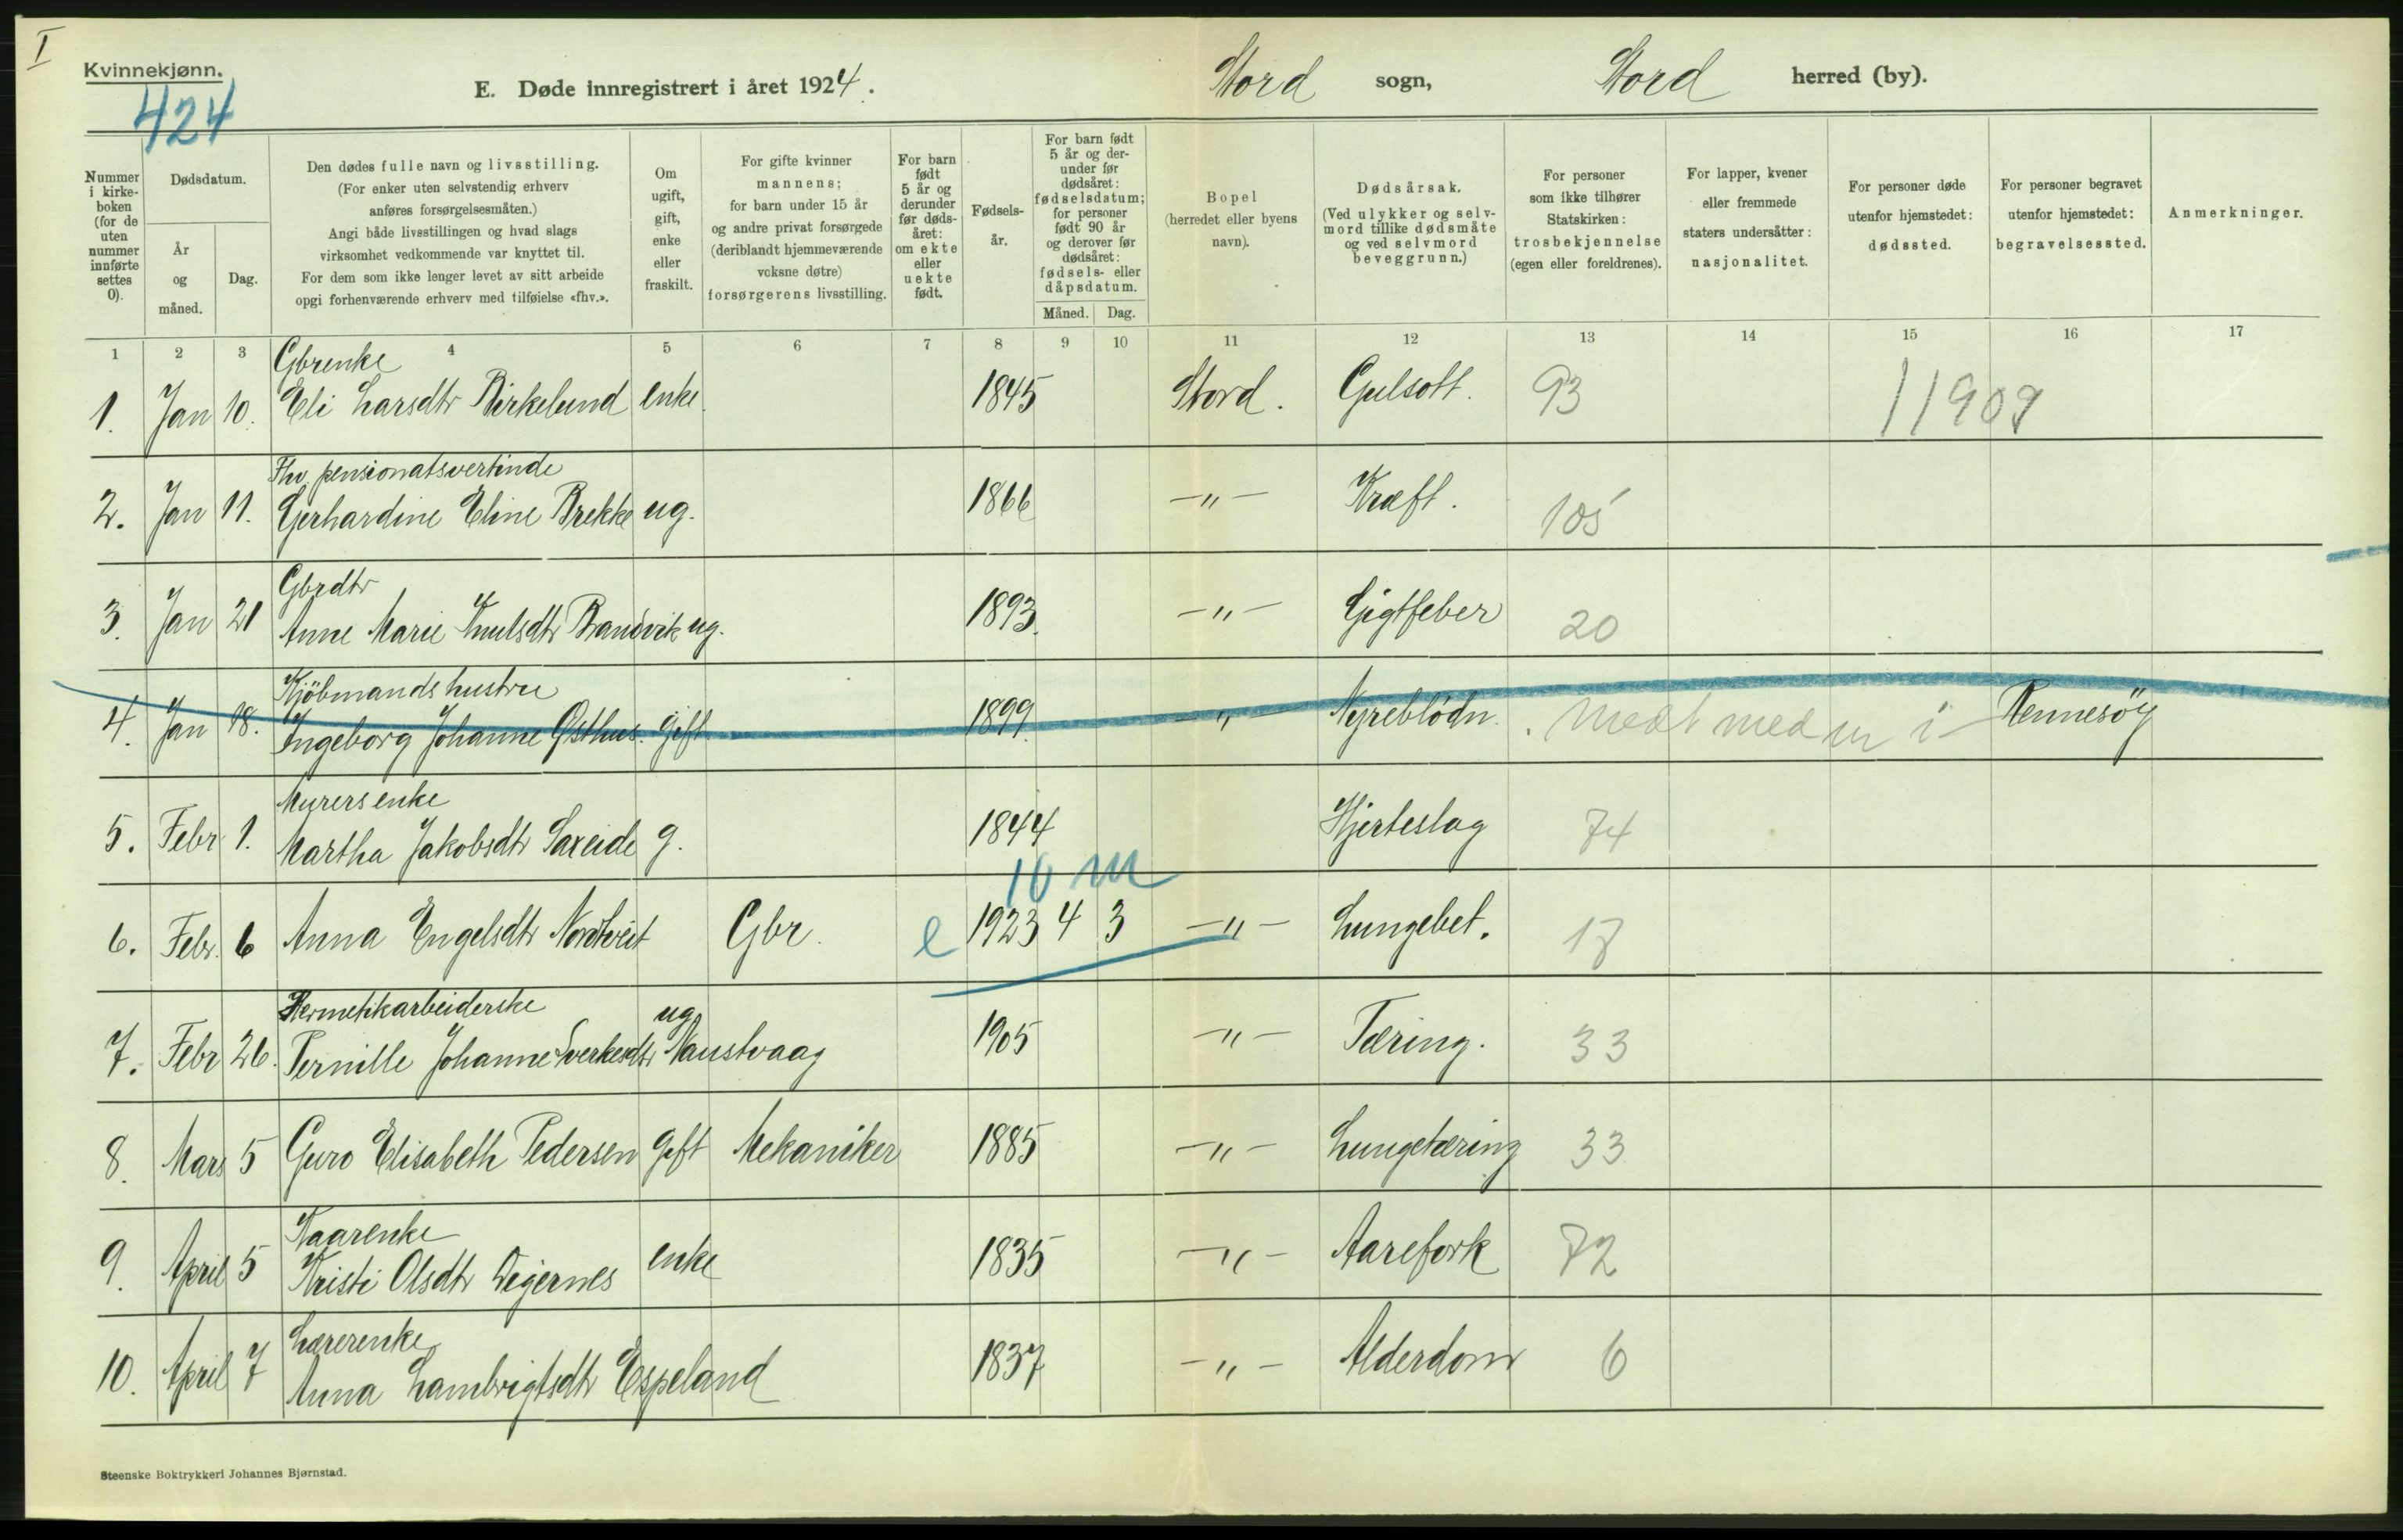 I
Kvinnekjønn.
424
E. Døde innregistrert i året 1924.
Stord sogn, Stord herred (by).
Nummer i kirkeboken (for de uten nummer innførte settes 0).
Dødsdatum.
År og måned.
Dag.
Den dødes fulle navn og livsstilling.
(For enker uten selvstendig erhverv
anføres forsørgelsesmåten.)
Angi både livsstillingen og hvad slags
virksomhet vedkommende var knyttet til.
For dem som ikke lenger levet av sitt arbeide
opgi forhenværende erhverv med tilføielse «fhv.».
Om ugift, gift, enke eller fraskilt.
For gifte kvinner
mannens;
for barn under 15 år
og andre privat forsørgede
(deriblandt hjemmeværende
voksne døtre)
forsørgerens livsstilling.
For barn født 5 år og derunder før dødsåret: om ekte eller uekte født.
Fødselsår.
For barn født 5 år og derunder før dødsåret: fødselsdatum; for personer født 90 år og derover før dødsåret: fødsels- eller dåpsdatum.
Måned. Dag.
Bopel
(herredet eller byens
navn).
Dødsårsak.
(Ved ulykker og selvmord tillike dødsmåte
og ved selvmord
beveggrunn.)
For personer
som ikke tilhører
Statskirken:
trosbekjennelse
(egen eller foreldrenes).
For lapper, kvener
eller fremmede
staters undersåtter:
nasjonalitet.
For personer døde
utenfor hjemstedet:
dødssted.
For personer begravet
utenfor hjemstedet:
begravelsessted.
Anmerkninger.
1 2 3 4 5 6 7 8 9 10 11 12 13 14 15 16 17
Gbrenke
1. Jan 10. Eli Larsdtr Birkelund enke. 1845 Stord. Gulsott. 93 11909
Fhv. pensionatsvertinde
2. Jan 11. Gerhardine Eline Brekke ug. 1866 -"- Kræft. 105
Gbrdtr
3. Jan 21 Anne Marie Knutsdtr Bandvik ug. 1893. -"- Gigtfeber 20
Kjöbmandshustru
4. Jan 18. Ingeborg Johanne Østhus. gift 1899. -"- Nyreblödn. medt med m i Rennesöy
Murers enke
5. Febr 1. Martha Jakobsdtr Saxeide g. 1844 Hjerteslag 74
10 m
6. Febr. 6 Anna Engelsdtr Nordtveit Gbr. e 1923 4 3 -"- Lungebet. 17
Hermetikarbeiderske ug
7. Febr 26. Pernille Johanne Sverkesdtr Naustvaag 1905 -"- Tæring. 33
8. Mars 5 Guro Elisabeth Pedersen gift Mekaniker 1885 -"- Lungetæring 33
Kaarenke
9. April 5 Kristi Olsdtr Digernes enke 1835 -"- Aarefork 72
Lærerenke
10. April 7 Anna Lambrigtsdtr Espeland 1837 -"- Alderdom 6
Steenske Boktrykkeri Johannes Bjørnstad.